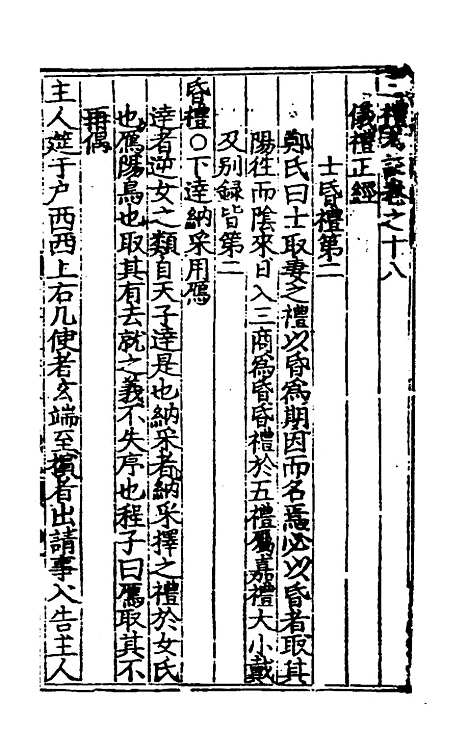 二禮考註卷之十八
儀禮正經
士昏禮第二
鄭氏曰士取妻之禮以昏為期因而名焉必以昏者取其
陽徃而陰來日入三商為昏昏禮於五禮屬嘉禮大小戴
及别録皆第二
昏禮○下達納采用鴈
達者逆女之類自天子達是也納采者納采擇之禮於女氏
也鴈陽鳥也取其有去就之義不失序也程子曰鴈取其不
再偶
主人筵于户西西上右几使者玄端至擯者出請事入告主人